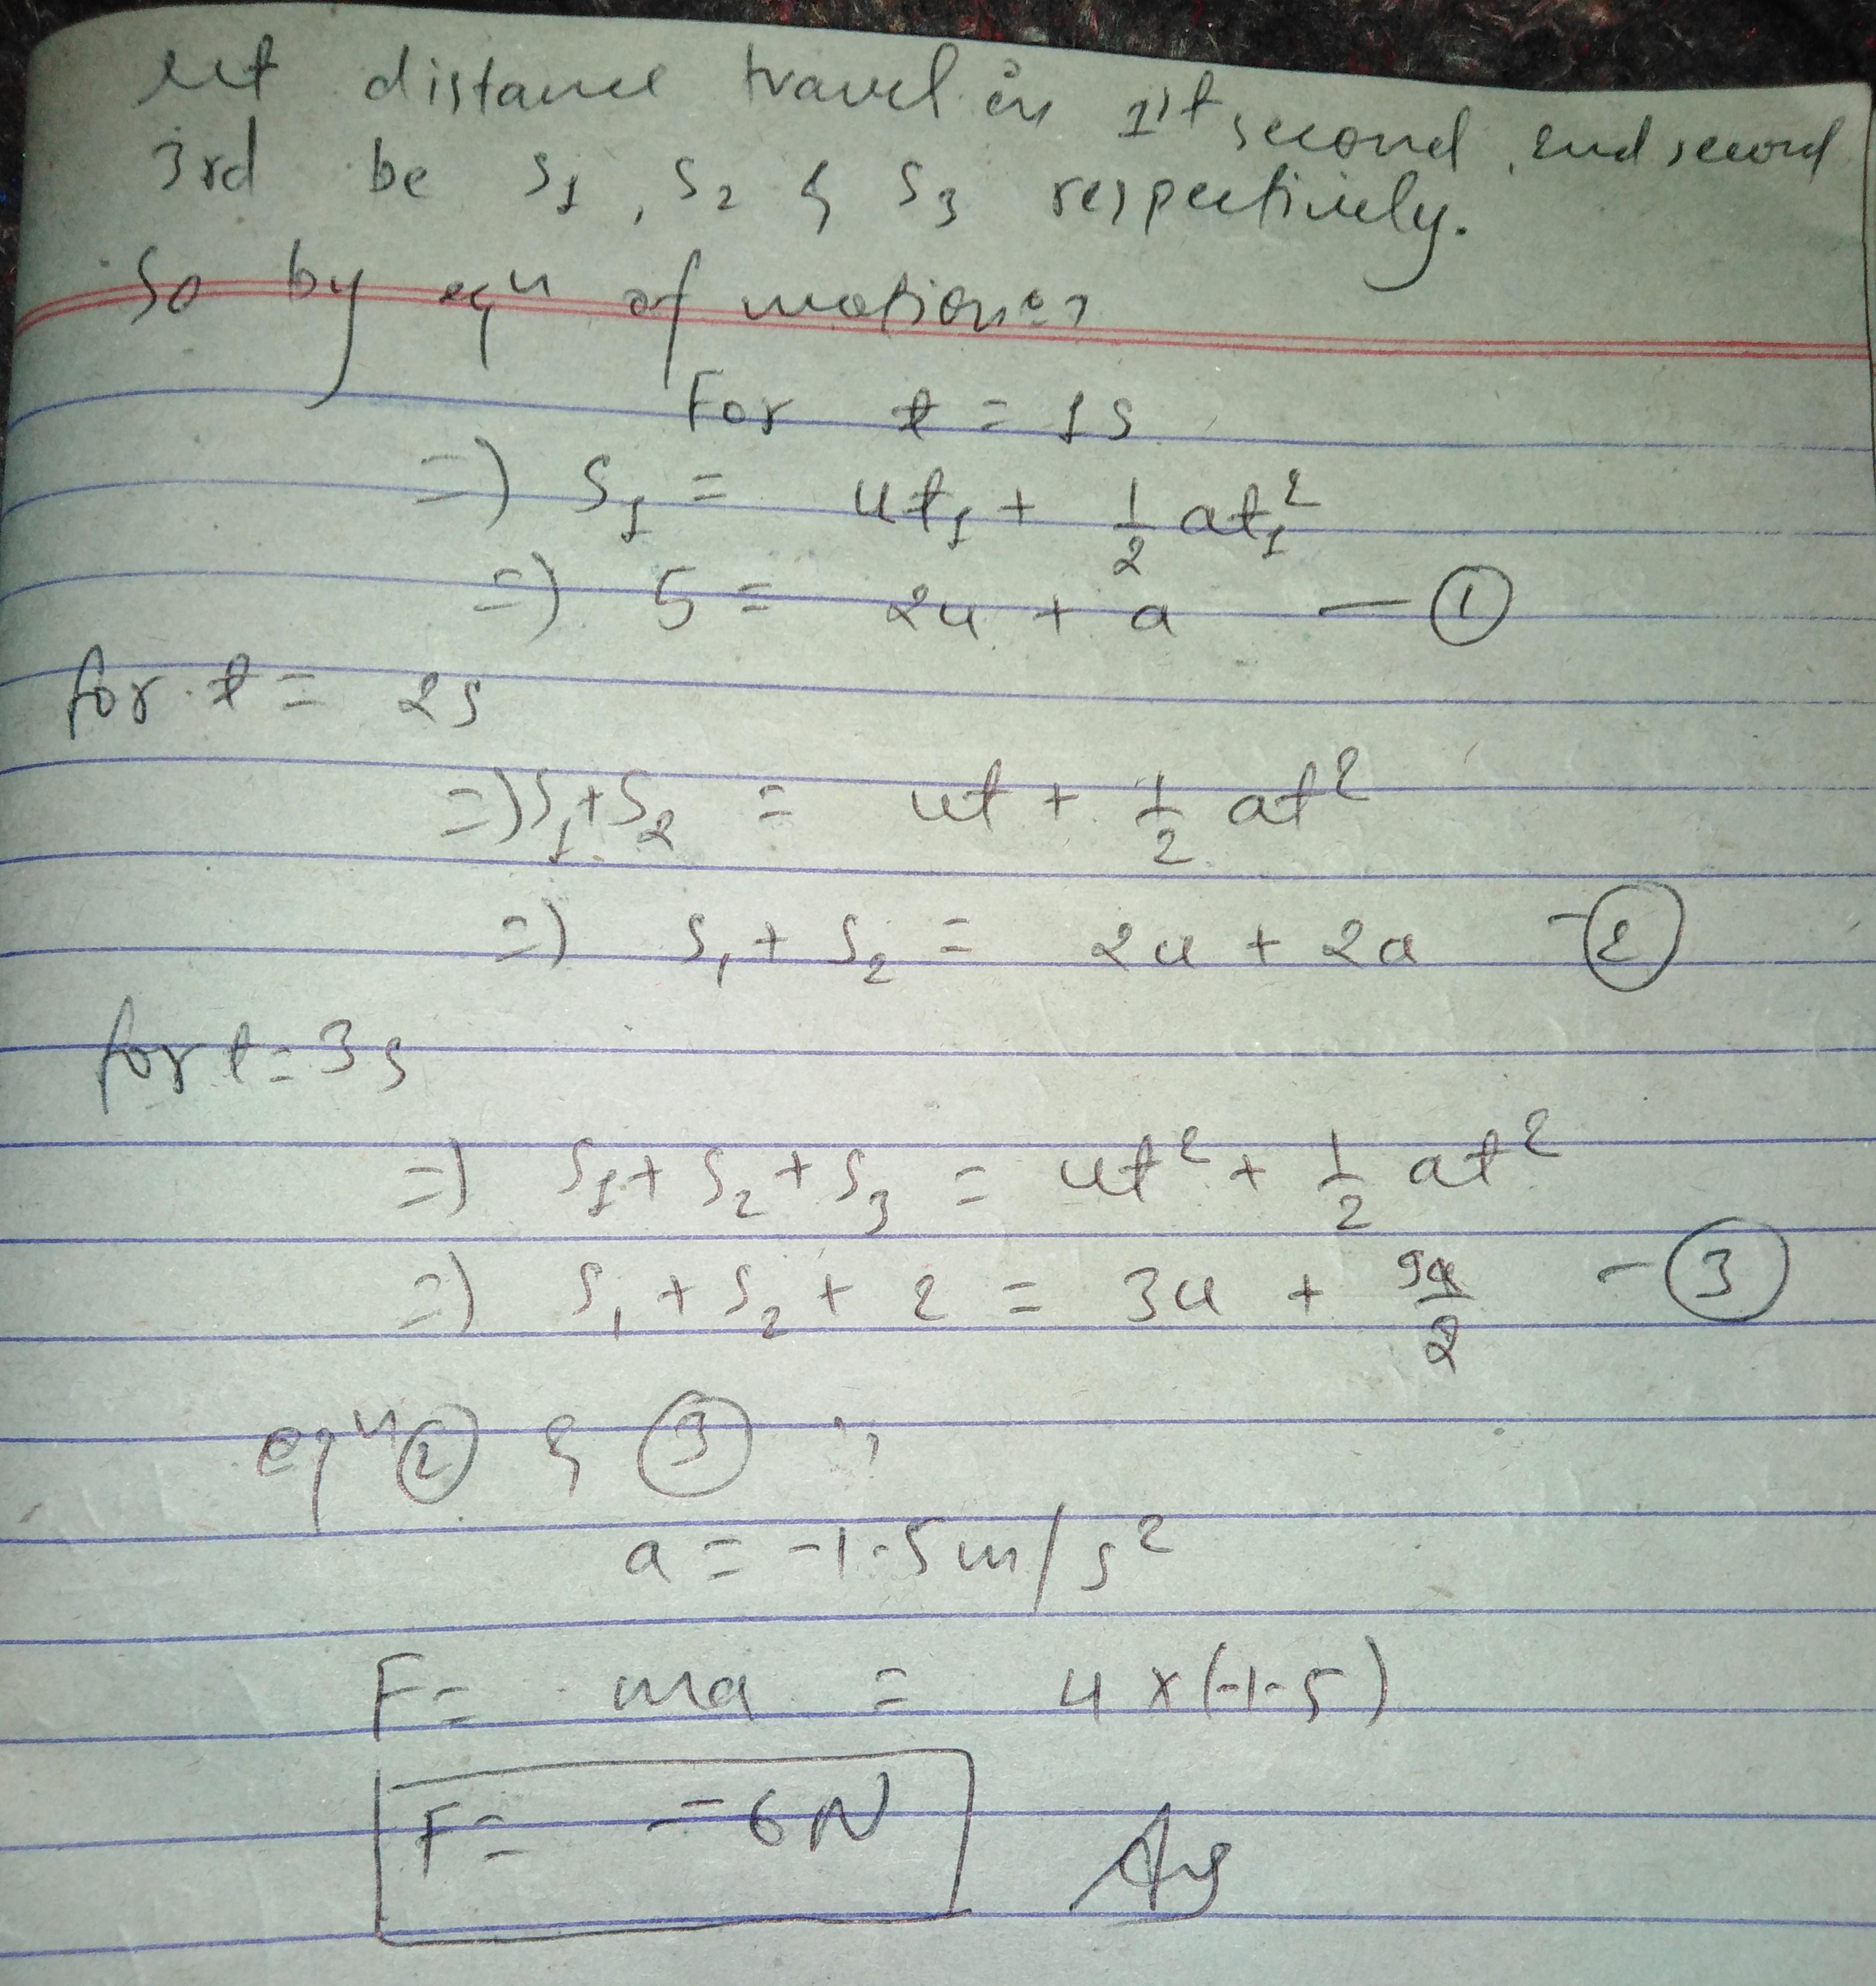 let distance travel in 1st second, 2nd second
3rd be s1, s2 & s3 respectively.
So by eqn of motion
For t = 1s
=) S1 = ut1 + 1/2 at1²
=) 5 = 2u + a — ①
for t = 2s
=) S1+S2 = ut + 1/2 at²
=) S1 + S2 = 2u + 2a - ②
for t = 3s
=) S1 + S2 + S3 = ut² + 1/2 at²
=) S1 + S2 + 2 = 3u + 9a/2 - ③
eqn ② & ③
a = -1.5m/s²
F = ma = 4 x (-1.5)
F = -6N Ans